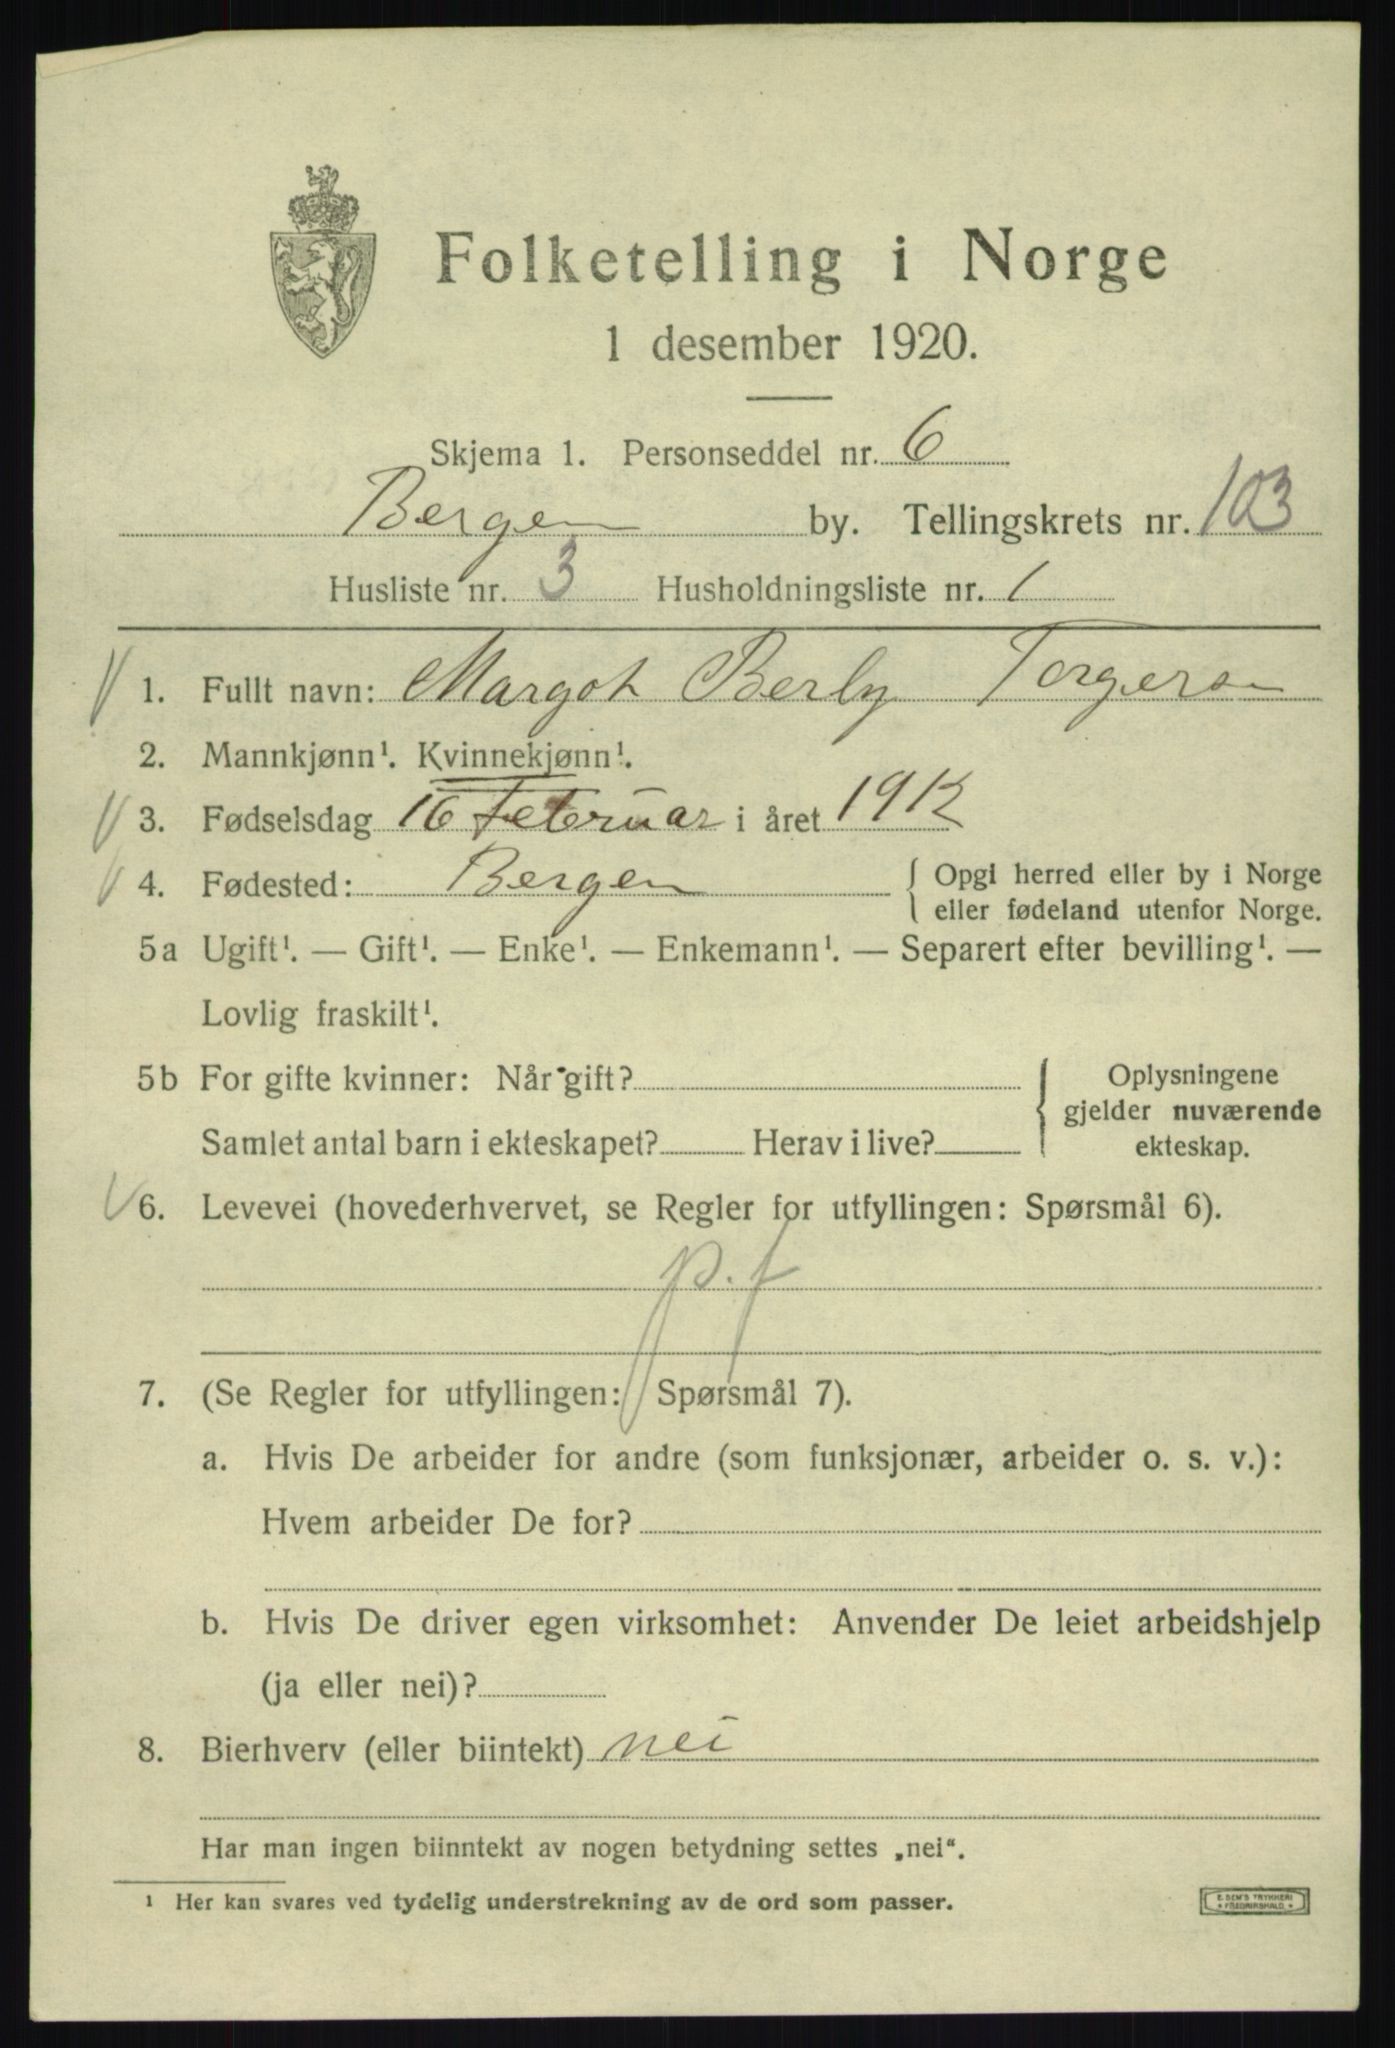 Folketelling i Norge
1 desember 1920.
Skjema 1. Personseddel nr. 6
Bergen by. Tellingskrets nr. 103
Husliste nr. 3 Husholdningsliste nr. 1
1. Fullt navn: Margot Berly Torgersen
2. Mannkjønn¹. Kvinnekjønn¹.
3. Fødselsdag 16 Februar i året 1912
4. Fødested: Bergen { Opgi herred eller by i Norge
eller fødeland utenfor Norge.
5a Ugift¹. — Gift¹. — Enke¹. — Enkemann¹. — Separert efter bevilling¹. —
Lovlig fraskilt¹.
5b For gifte kvinner: Når gift? { Oplysningene
gjelder nuværende
Samlet antal barn i ekteskapet? Herav i live? ekteskap.
6. Levevei (hovederhvervet, se Regler for utfyllingen: Spørsmål 6).
p. f
7. (Se Regler for utfyllingen: Spørsmål 7).
a. Hvis De arbeider for andre (som funksjonær, arbeider o. s. v.):
Hvem arbeider De for?
b. Hvis De driver egen virksomhet: Anvender De leiet arbeidshjelp
(ja eller nei)?
8. Bierhverv (eller biintekt) nei
Har man ingen biinntekt av nogen betydning settes „nei“.
¹ Her kan svares ved tydelig understrekning av de ord som passer.
E. SEM'S TRYKKERI
FREDRIKSHALD